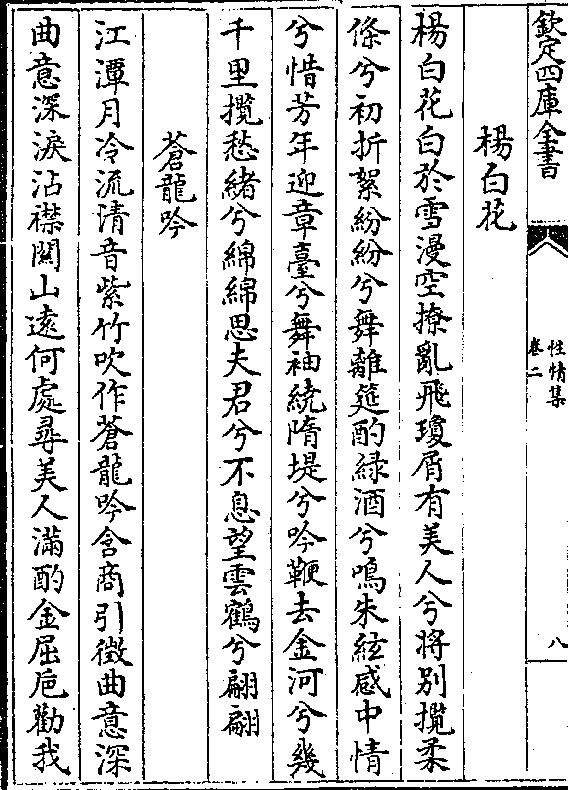 欽定四庫全書
性情集
卷二
八
楊白花
楊白花白於雪漫空撩亂飛瓊屑有美人兮將别攬柔
條兮初折絮紛紛兮舞離筵酌緑酒兮鳴朱絃感中情
兮惜芳年迎章臺兮舞袖繞隋堤兮吟鞭去金河兮幾
千里攬愁緒兮綿綿思夫君兮不息望雲鶴兮翩翩
蒼龍吟
江潭月冷流清音紫竹吹作蒼龍吟含商引徴曲意深
曲意深淚沾襟關山遠何處尋美人滿酌金屈卮勸我